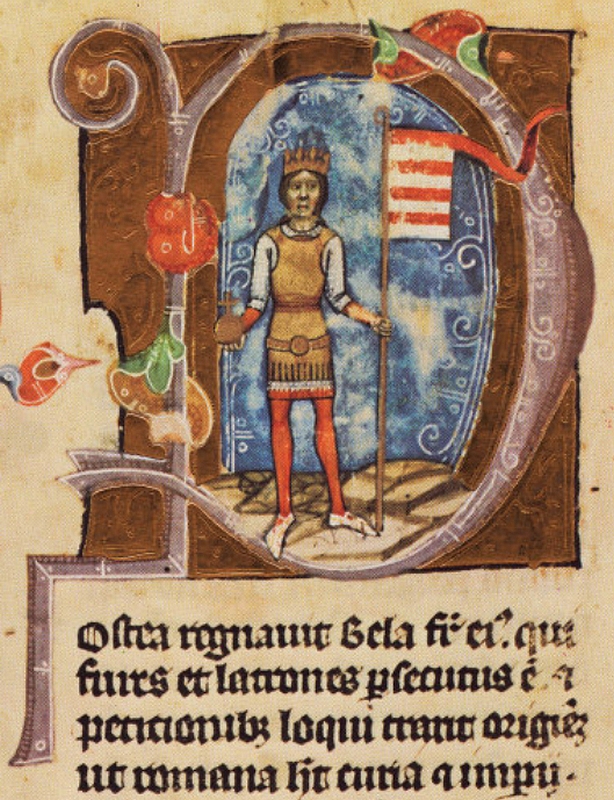 POſtea regnauit Bela fr̄ eiꝰ. qui
fures et latrones ꝑſecutus ē. ⁊
peticionibꝫ loqui traxit origīeꝫ
ut romana hꝫ curia ⁊ impij.